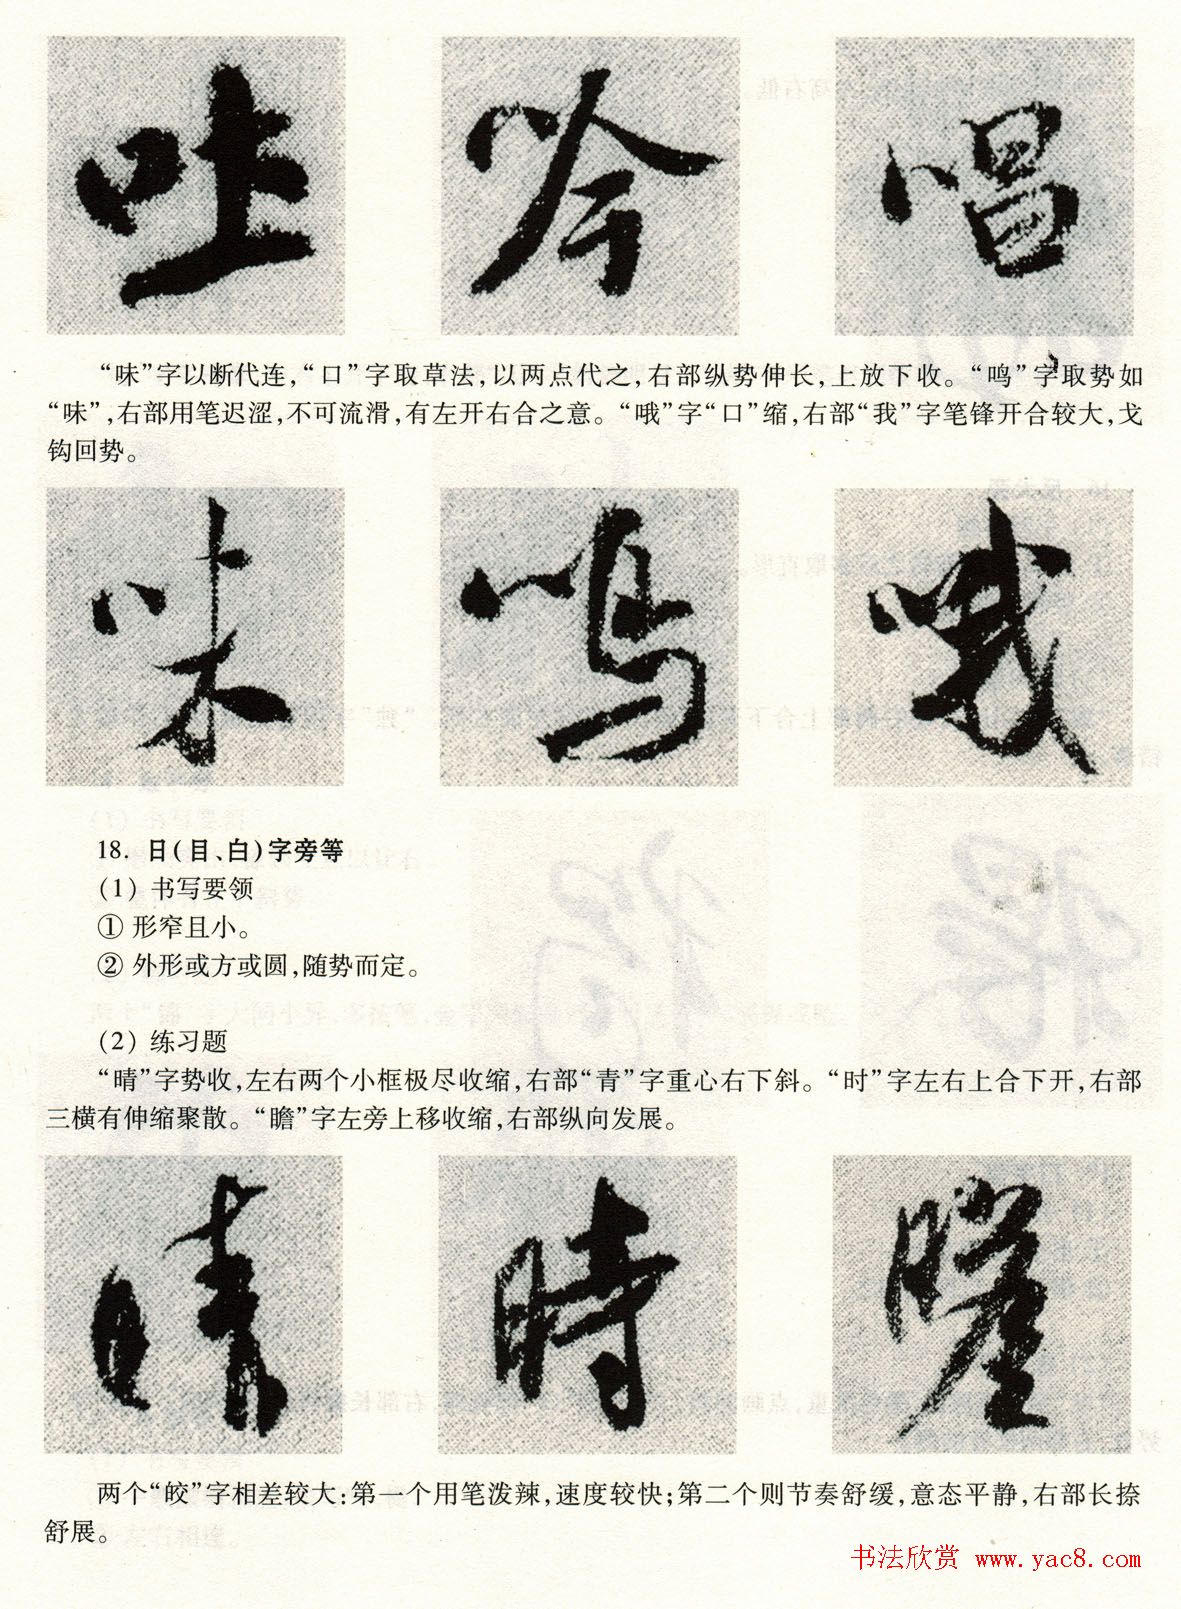 吐 吟 唱
“味”字以断代连，“口”字取草法，以两点代之，右部纵势伸长，上放下收。“鸣”字取势如
“味”，右部用笔迟涩，不可流滑，有左开右合之意。“哦”字“口”缩，右部“我”字笔锋开合较大，戈
钩回势。
味 鸣 哦
18. 日（目、白）字旁等
(1) 书写要领
① 形窄且小。
② 外形或方或圆，随势而定。
(2) 练习题
“晴”字势收，左右两个小框极尽收缩，右部“青”字重心右下斜。“时”字左右上合下开，右部
三横有伸缩聚散。“瞻”字左旁上移收缩，右部纵向发展。
晴 時 瞻
两个“皎”字相差较大：第一个用笔泼辣，速度较快；第二个则节奏舒缓，意态平静，右部长捺
舒展。
书法欣赏 www.yac8.com